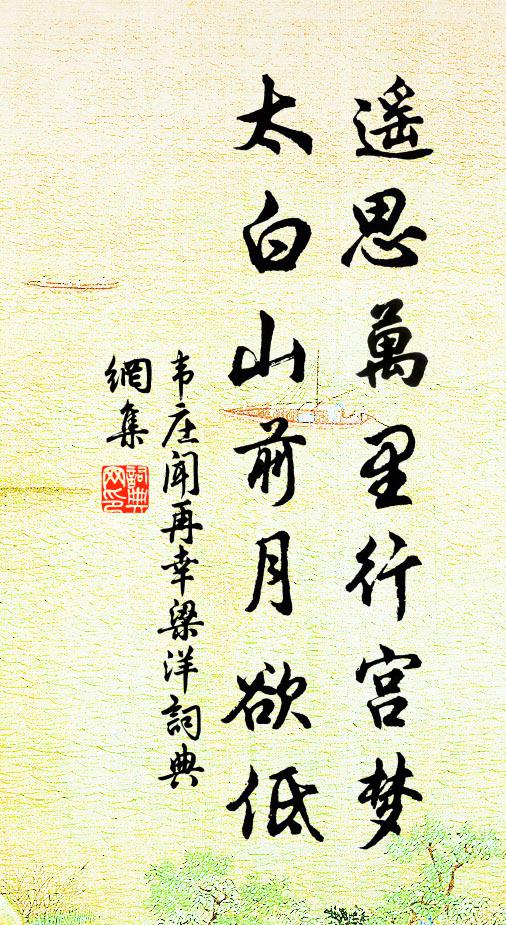 遥思萬里行宫梦
太白山前月欲低
韦庄闻再幸梁洋詞典
網集
詞典
网印